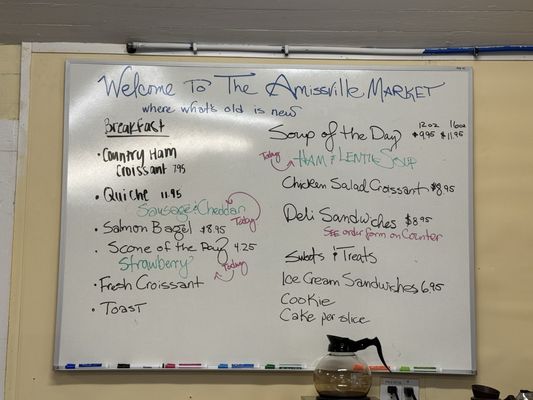 Welcome To The Amissville Market
where what's old is new
Breakfast
• Country Ham
Croissant 7.95
• Quiche 11.95
Sausage & Cheddar
Today
• Salmon Bagel $8.95
• Scone of the Day 4.25
Strawberry
Today
• Fresh Croissant
• Toast
12oz 16oz
Soup of the Day $9.95 $11.95
Today
Ham & Lentil Soup
Chicken Salad Croissant $8.95
Deli Sandwiches $8.95
See order form on Counter
Sweets & Treats
Ice Cream Sandwiches 6.95
Cookie
Cake per slice